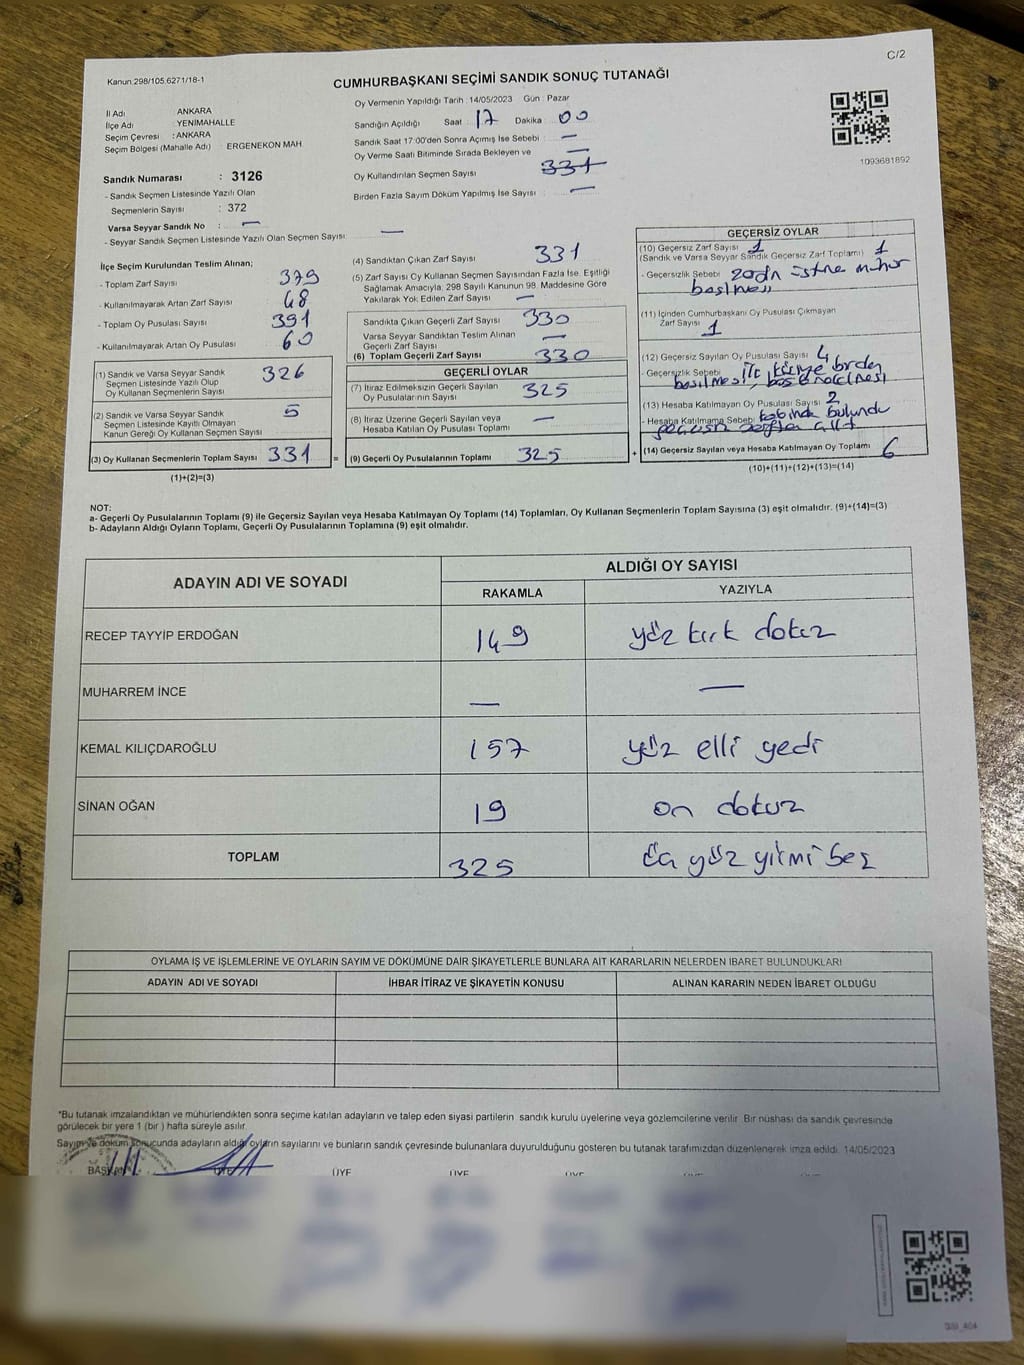 C/2
Kanun 298/105.6271/18-1
CUMHURBAŞKANI SEÇİMİ SANDIK SONUÇ TUTANAĞI
İl Adı : ANKARA
İlçe Adı : YENİMAHALLE
Seçim Çevresi : ANKARA
Seçim Bölgesi (Mahalle Adı) ERGENEKON MAH.
Sandık Numarası : 3126
- Sandık Seçmen Listesinde Yazılı Olan
Seçmenlerin Sayısı : 372
Varsa Seyyar Sandık No : —
- Seyyar Sandık Seçmen Listesinde Yazılı Olan Seçmen Sayısı: —
Oy Vermenin Yapıldığı Tarih :14/05/2023 Gün : Pazar
Sandığın Açıldığı Saat : 17 Dakika : 00
Sandık Saat 17:00'den Sonra Açımış İse Sebebi : —
Oy Verme Saati Bitiminde Sırada Bekleyen ve —
Oy Kullandırılan Seçmen Sayısı : 331
Birden Fazla Sayım Döküm Yapılmış İse Sayısı : —
1093681892
İlçe Seçim Kurulundan Teslim Alınan;
- Toplam Zarf Sayısı : 379
- Kullanılmayarak Artan Zarf Sayısı : 48
- Toplam Oy Pusulası Sayısı : 391
- Kullanılmayarak Artan Oy Pusulası : 60
(1) Sandık ve Varsa Seyyar Sandık
Seçmen Listesinde Yazılı Olup
Oy Kullanan Seçmenlerin Sayısı 326
(2) Sandık ve Varsa Seyyar Sandık
Seçmen Listesinde Kayıtlı Olmayan
Kanun Gereği Oy Kullanan Seçmen Sayısı 5
(3) Oy Kullanan Seçmenlerin Toplam Sayısı 331 =
(1)+(2)=(3)
(4) Sandıktan Çıkan Zarf Sayısı 331
(5) Zarf Sayısı Oy Kullanan Seçmen Sayısından Fazla İse, Eşitliği
Sağlamak Amacıyla, 298 Sayılı Kanunun 98. Maddesine Göre
Yakılarak Yok Edilen Zarf Sayısı —
Sandıkta Çıkan Geçerli Zarf Sayısı 330
Varsa Seyyar Sandıktan Teslim Alınan
Geçerli Zarf Sayısı —
(6) Toplam Geçerli Zarf Sayısı 330
GEÇERLİ OYLAR
(7) İtiraz Edilmeksizin Geçerli Sayılan
Oy Pusulalarının Sayısı 325
(8) İtiraz Üzerine Geçerli Sayılan veya
Hesaba Katılan Oy Pusulası Toplamı —
(9) Geçerli Oy Pusulalarının Toplamı 325 +
GEÇERSİZ OYLAR
(10) Geçersiz Zarf Sayısı 1
(Sandık ve Varsa Seyyar Sandık Geçersiz Zarf Toplamı) 1
- Geçersizlik Sebebi üstüne mühür
(11) İçinden Cumhurbaşkanı Oy Pusulası Çıkmayan
Zarf Sayısı 1
(12) Geçersiz Sayılan Oy Pusulası Sayısı 4
- Geçersizlik Sebebi birden
basılmesi,
(13) Hesaba Katılmayan Oy Pusulası Sayısı 2
- Hesaba Katılmama Sebebi bulundu
(14) Geçersiz Sayılan veya Hesaba Katılmayan Oy Toplamı 6
(10)+(11)+(12)+(13)=(14)
NOT:
a- Geçerli Oy Pusulalarının Toplamı (9) ile Geçersiz Sayılan veya Hesaba Katılmayan Oy Toplamı (14) Toplamları, Oy Kullanan Seçmenlerin Toplam Sayısına (3) eşit olmalıdır. (9)+(14)=(3)
b- Adayların Aldığı Oyların Toplamı, Geçerli Oy Pusulalarının Toplamına (9) eşit olmalıdır.
ADAYIN ADI VE SOYADI
ALDIĞI OY SAYISI
RAKAMLA YAZIYLA
RECEP TAYYİP ERDOĞAN 149 yüz kırk dokuz
MUHARREM İNCE — —
KEMAL KILIÇDAROĞLU 157 yüz elli yedi
SİNAN OĞAN 19 on dokuz
TOPLAM 325 üç yüz yirmi beş
OYLAMA İŞ VE İŞLEMLERİNE VE OYLARIN SAYIM VE DÖKÜMÜNE DAİR ŞİKAYETLERLE BUNLARA AİT KARARLARIN NELERDEN İBARET BULUNDUKLARI
ADAYIN ADI VE SOYADI İHBAR İTİRAZ VE ŞİKAYETİN KONUSU ALINAN KARARIN NEDEN İBARET OLDUĞU
*Bu tutanak imzalandıktan ve mühürlendikten sonra seçime katılan adayların ve talep eden siyasi partilerin sandık kurulu üyelerine veya gözlemcilerine verilir. Bir nüshası da sandık çevresinde
görülecek bir yere 1 (bir) hafta süreyle asılır.
Sayım ve döküm sonucunda adayların aldığı oyların sayılarını ve bunların sandık çevresinde bulunanlara duyurulduğunu gösteren bu tutanak tarafımızdan düzenlenerek imza edildi. 14/05/2023
BAŞKAN ÜYE ÜYE ÜYE